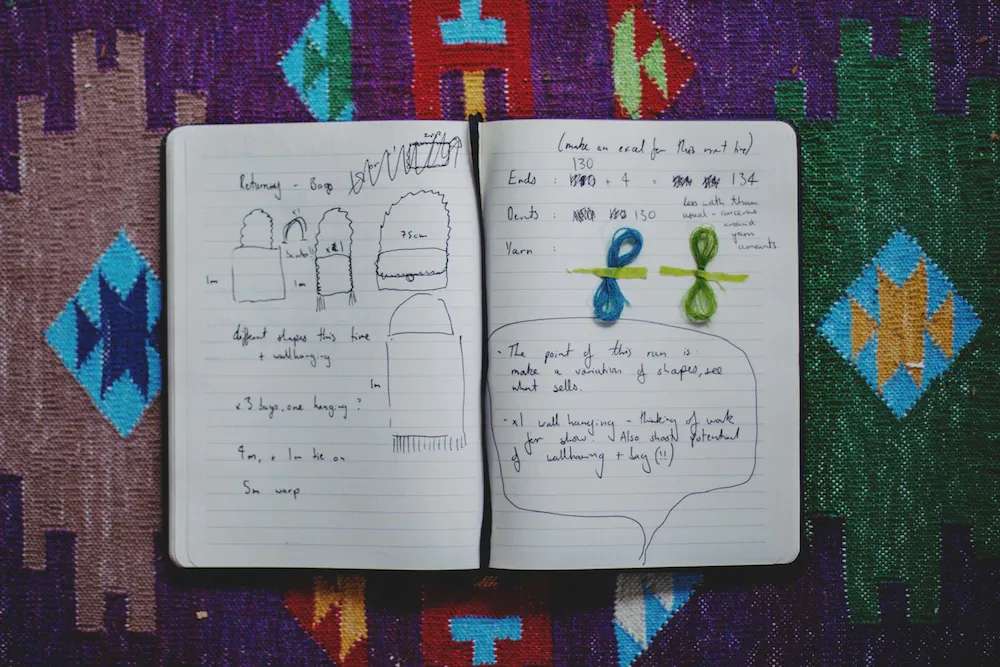 Returning - Bags
x1
x1
1m
1m
75cm
different shapes this time
+ wallhanging
1m
x 3 bags, one hanging?
4m, + 1m tie on
5m warp
(make an excel for this next time)
130
Ends : + 4 = 134
Dents : 130
less width than
usual - concerns
around
yarn
amounts
Yarn :
- The point of this run is
make a variation of shapes, see
what sells.
- x1 wall hanging - thinking of work
for show! Also shoot potential
of wallhaning + bag (!!)